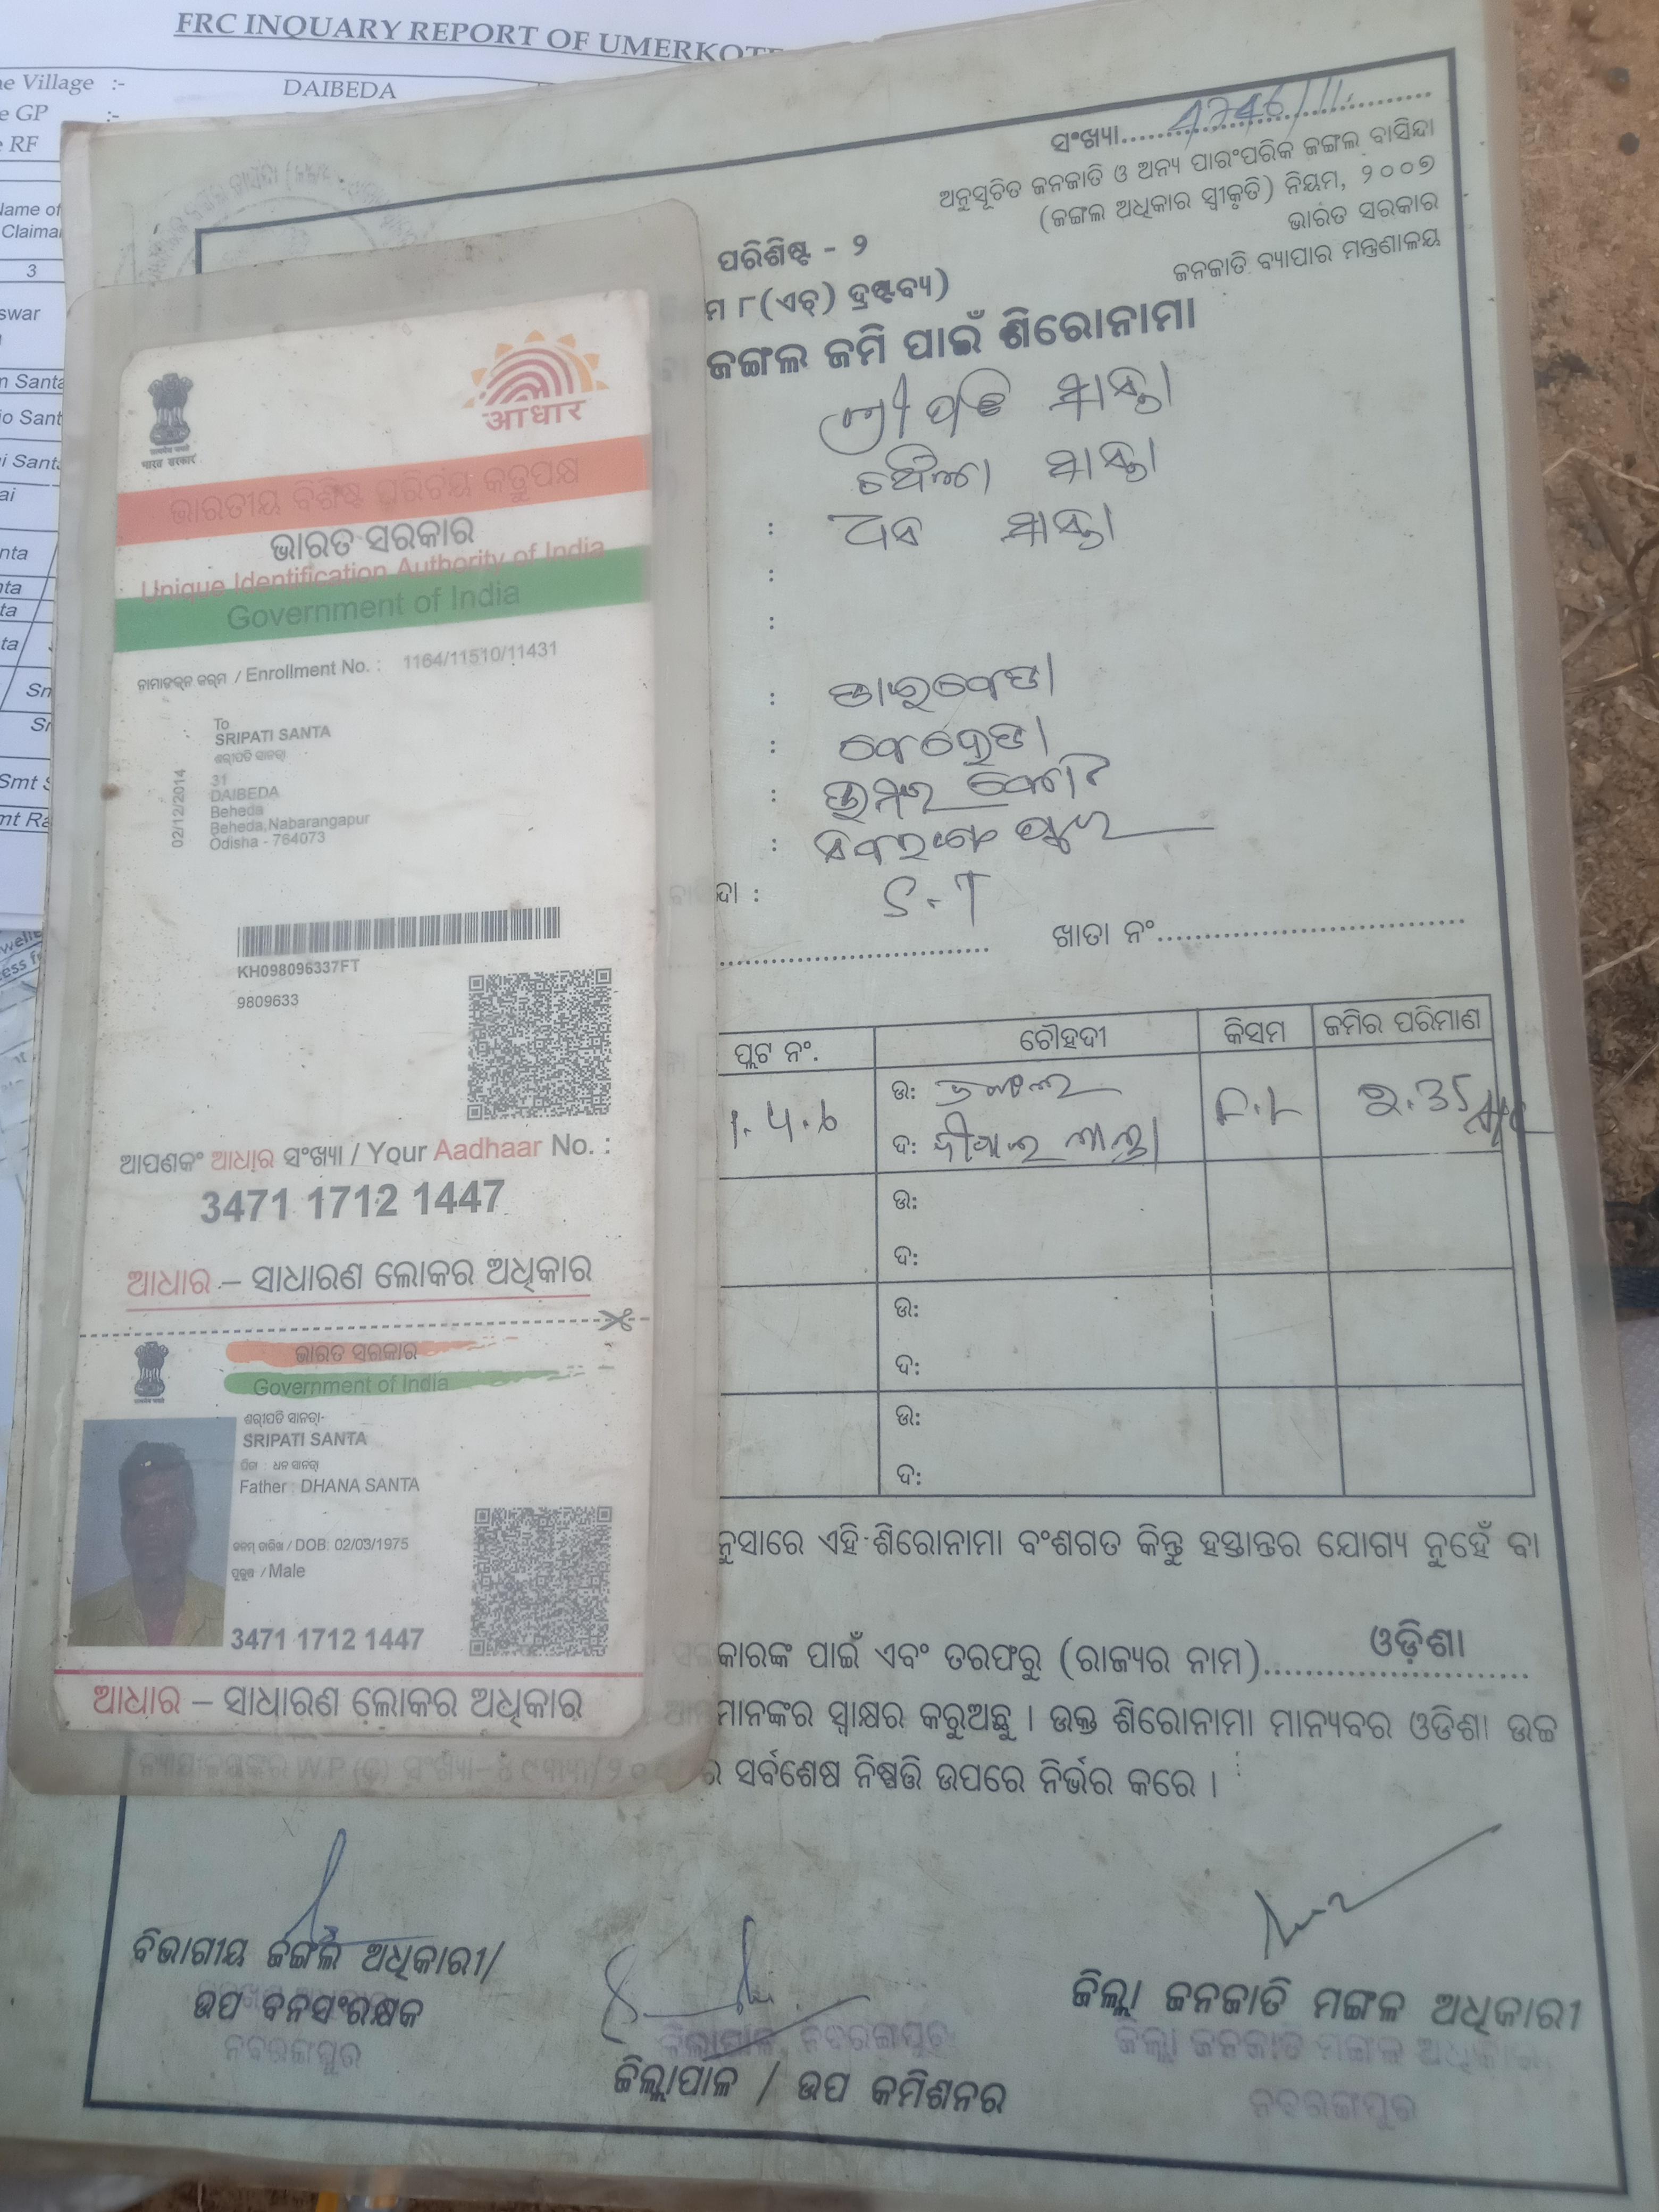 FRC INQUARY REPORT OF UMERKOTE
ne Village :- DAIBEDA
e GP :-
e RF
Name of
Claima
3
swar
n Santa
io Sant
i Santa
ai
nta
nta
ta
ta
Sn
Sr
Smt S
mt Ra
ସଂଖ୍ୟା
ଅନୁସୂଚିତ ଜନଜାତି ଓ ଅନ୍ୟ ପାରଂପରିକ ଜଙ୍ଗଲ ବାସିନ୍ଦା
(ଜଙ୍ଗଲ ଅଧିକାର ସ୍ୱୀକୃତି) ନିୟମ, ୨୦୦୭
ଭାରତ ସରକାର
ଜନଜାତି ବ୍ୟାପାର ମନ୍ତ୍ରଣାଳୟ
ପରିଶିଷ୍ଟ - ୨
ମ ୮(ଏଚ୍) ଦ୍ରଷ୍ଟବ୍ୟ)
ଜଙ୍ଗଲ ଜମି ପାଇଁ ଶିରୋନାମା
ଶ୍ରୀପତି ସାନ୍ତା
ସାନ୍ତା
: ଧନ ସାନ୍ତା
:
:
: ଡାଇବେଡା
: ବେହେଡା
: ଉମରକୋଟ
: ନବରଙ୍ଗପୁର
ନ୍ଦା : S.T
ଖାତା ନଂ
ପ୍ଲଟ ନଂ. ଚୌହଦୀ କିସମ ଜମିର ପରିମାଣ
ଉ: ଜଙ୍ଗଲ
ଦ:
ଉ:
ଦ:
ଉ:
ଦ:
ଉ:
ଦ:
ନୁସାରେ ଏହି ଶିରୋନାମା ବଂଶଗତ କିନ୍ତୁ ହସ୍ତାନ୍ତର ଯୋଗ୍ୟ ନୁହେଁ ବା
କାରଙ୍କ ପାଇଁ ଏବଂ ତରଫରୁ (ରାଜ୍ୟର ନାମ) ଓଡ଼ିଶା
ମାନଙ୍କର ସ୍ୱାକ୍ଷର କରୁଅଛୁ । ଉକ୍ତ ଶିରୋନାମା ମାନ୍ୟବର ଓଡିଶା ଉଚ୍ଚ
ର ସର୍ବଶେଷ ନିଷ୍ପତ୍ତି ଉପରେ ନିର୍ଭର କରେ ।
ବିଭାଗୀୟ ଜଙ୍ଗଲ ଅଧିକାରୀ/
ଉପ ବନସଂରକ୍ଷକ
ନବରଙ୍ଗପୁର
ଜିଲ୍ଲାପାଳ, ନବରଙ୍ଗପୁର
ଜିଲ୍ଲାପାଳ / ଉପ କମିଶନର
ଜିଲ୍ଲା ଜନଜାତି ମଙ୍ଗଳ ଅଧିକାରୀ
ଜିଲ୍ଲା ଜନଜାତି ମଙ୍ଗଳ ଅଧିକାରୀ
ନବରଙ୍ଗପୁର
आधार
भारत सरकार
ଭାରତୀୟ ବିଶିଷ୍ଟ ପରିଚୟ କର୍ତ୍ତୃପକ୍ଷ
ଭାରତ ସରକାର
Unique Identification Authority of India
Government of India
ନାମାଙ୍କନ କ୍ରମ / Enrollment No. : 1164/11510/11431
02/12/2014
To
SRIPATI SANTA
ଶ୍ରୀପତି ସାନ୍ତା
31
DAIBEDA
Beheda
Beheda,Nabarangapur
Odisha - 764073
KH098096337FT
9809633
ଆପଣଙ୍କ ଆଧାର ସଂଖ୍ୟା / Your Aadhaar No. :
3471 1712 1447
ଆଧାର – ସାଧାରଣ ଲୋକର ଅଧିକାର
ଭାରତ ସରକାର
Government of India
ଶ୍ରୀପତି ସାନ୍ତା
SRIPATI SANTA
ପିତା : ଧନ ସାନ୍ତା
Father : DHANA SANTA
ଜନ୍ମ ତାରିଖ / DOB: 02/03/1975
ପୁରୁଷ / Male
3471 1712 1447
ଆଧାର – ସାଧାରଣ ଲୋକର ଅଧିକାର